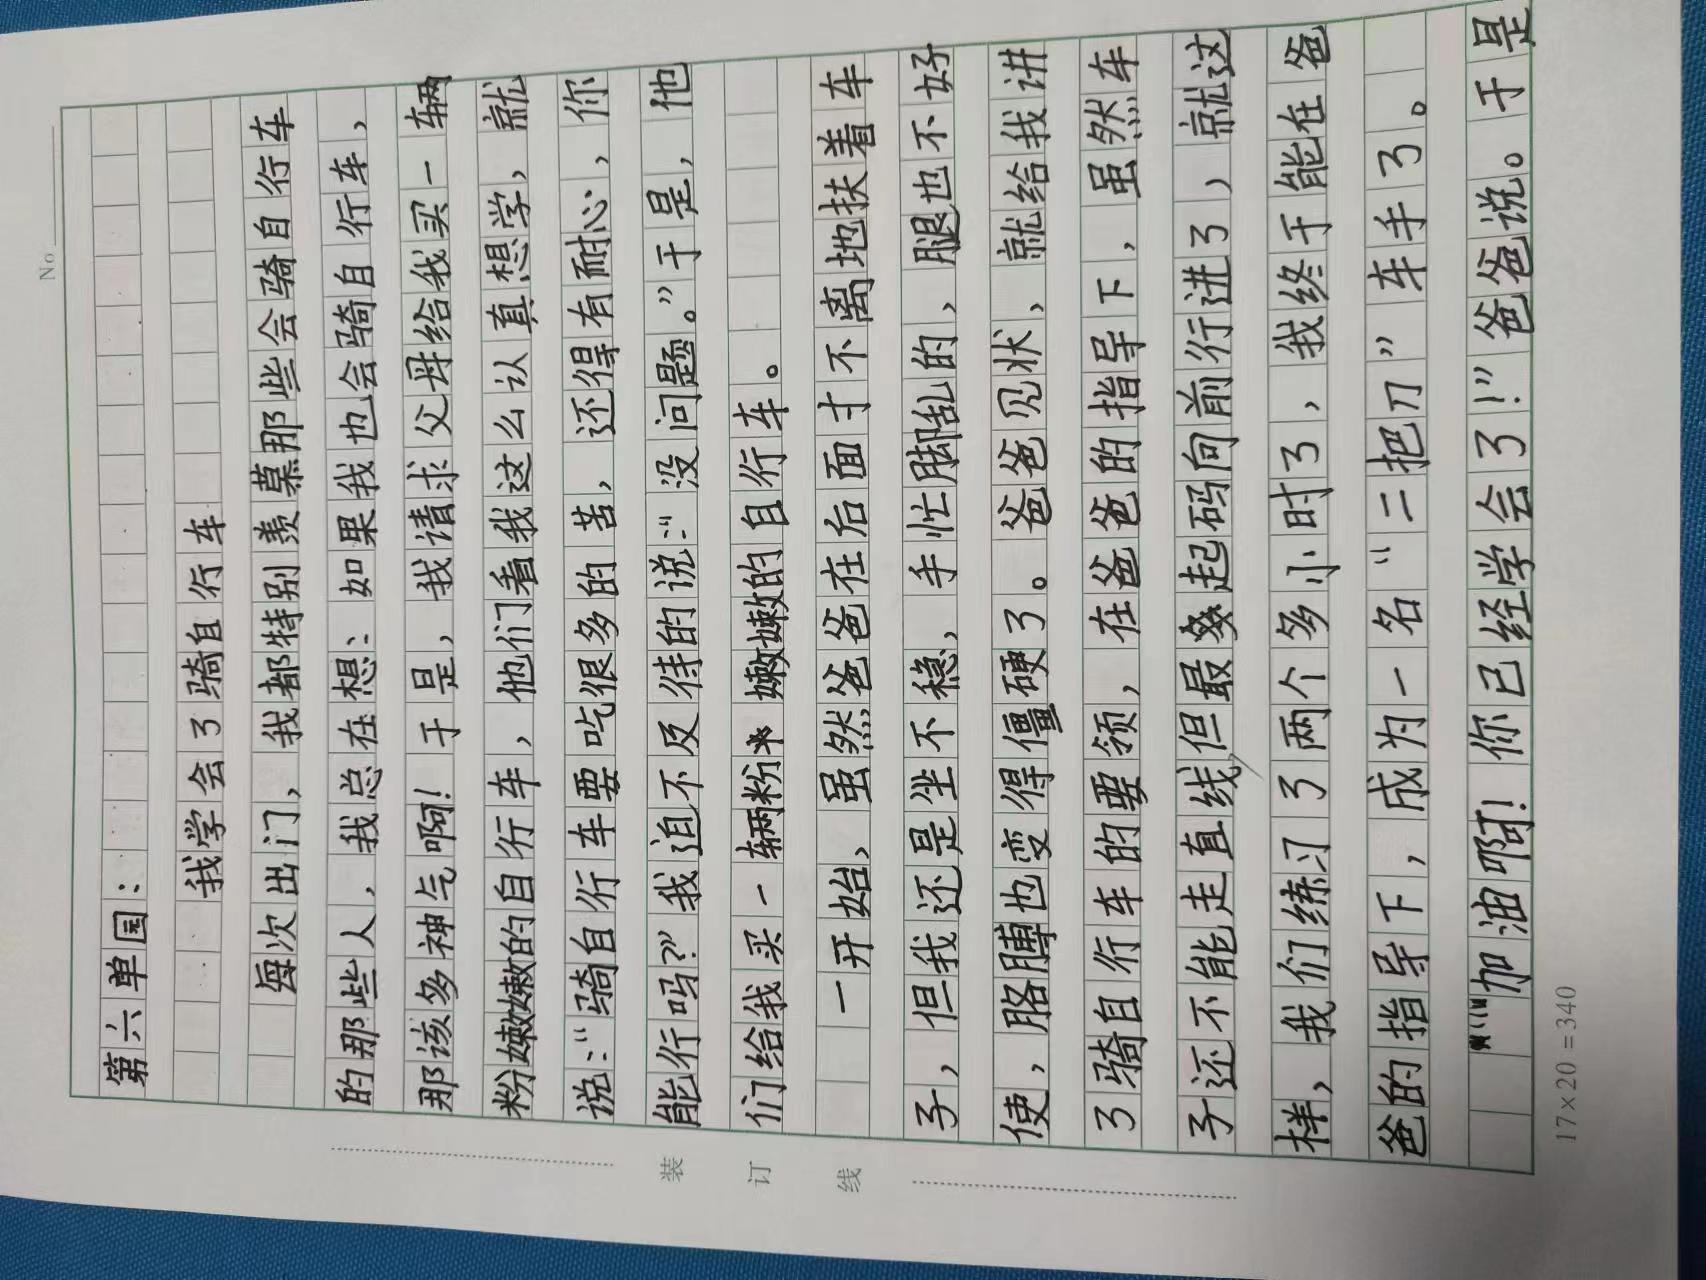 No
第六单园：
我学会了骑自行车
每次出门，我都特别羡慕那些会骑自行车
的那些人，我总在想：如果我也会骑自行车，
那该多神气啊！于是，我请求父母给我买一辆
粉嫩嫩的自行车，他们看我这么认真想学，就
说：“骑自行车要吃很多的苦，还得有耐心，你
能行吗？”我迫不及待的说：“没问题。”于是，他
们给我买一辆粉嫩嫩的自行车。
一开始，虽然爸爸在后面寸不离地扶着车
子，但我还是坐不稳，手忙脚乱的，腿也不好
使，胳膊也变得僵硬了。爸爸见状，就给我讲
了骑自行车的要领，在爸爸的指导下，虽然车
子还不能走直线，但最起码向前行进了，就这
样，我们练习了两个多小时了，我终于能在爸
爸的指导下，成为一名“二把刀”车手了。
“加油啊！你已经学会了！”爸爸说。于是
装
订
线
17×20=340